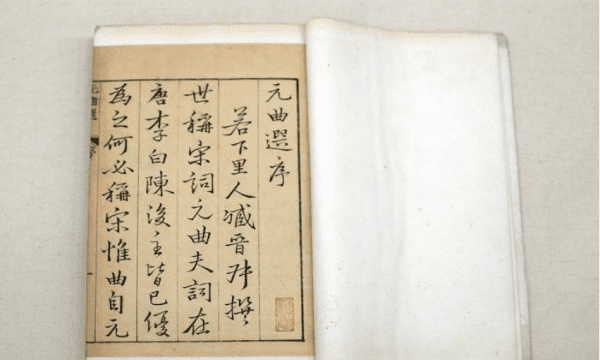 元曲選序
若下里人臧晉叔撰
世稱宋詞元曲夫詞在
唐李白陳後主皆已優
為之何必稱宋惟曲自元
元曲選 序 一